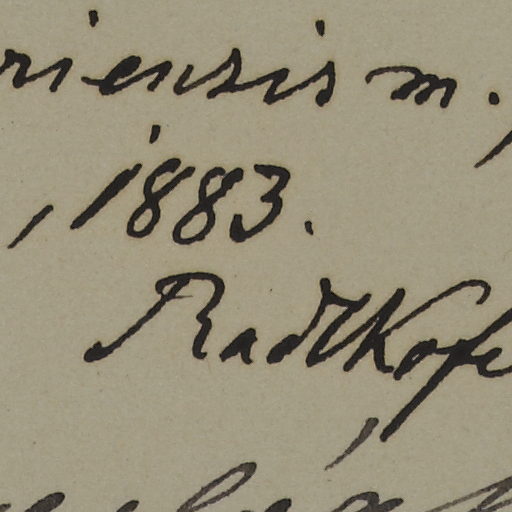 riensis m.,
, 1883.
Radlkofe